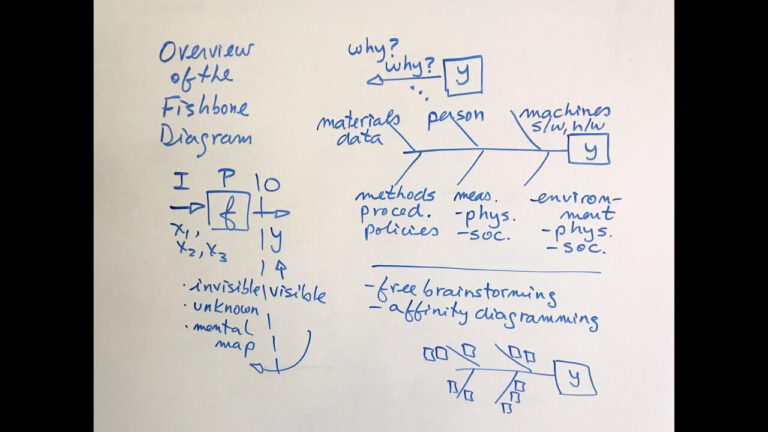 Overview
of the
Fishbone
Diagram
I P O
f
x1,
x2, x3
y
· invisible visible
· unknown
· mental
map
why?
why?
y
materials
data
person
machines
s/w, h/w
y
methods
proced.
policies
meas.
-phys.
-soc.
environ-
ment
-phys.
-soc.
-free brainstorming
- affinity diagramming
y